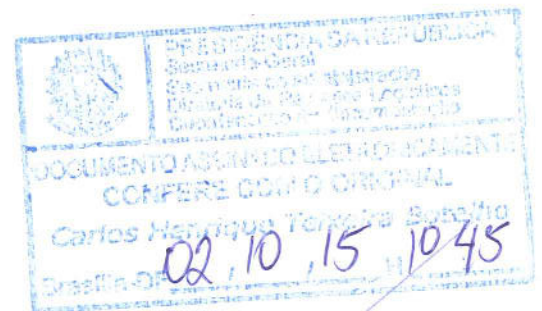 PRESIDÊNCIA DA REPÚBLICA
Secretaria-Geral
Secretaria de Administração
Diretoria de Recursos Logísticos
DOCUMENTO ASSINADO ELETRONICAMENTE
CONFERE COM O ORIGINAL
Carlos Henrique Teixeira Botelho
Brasília-DF 02, 10, 15 H 10 45